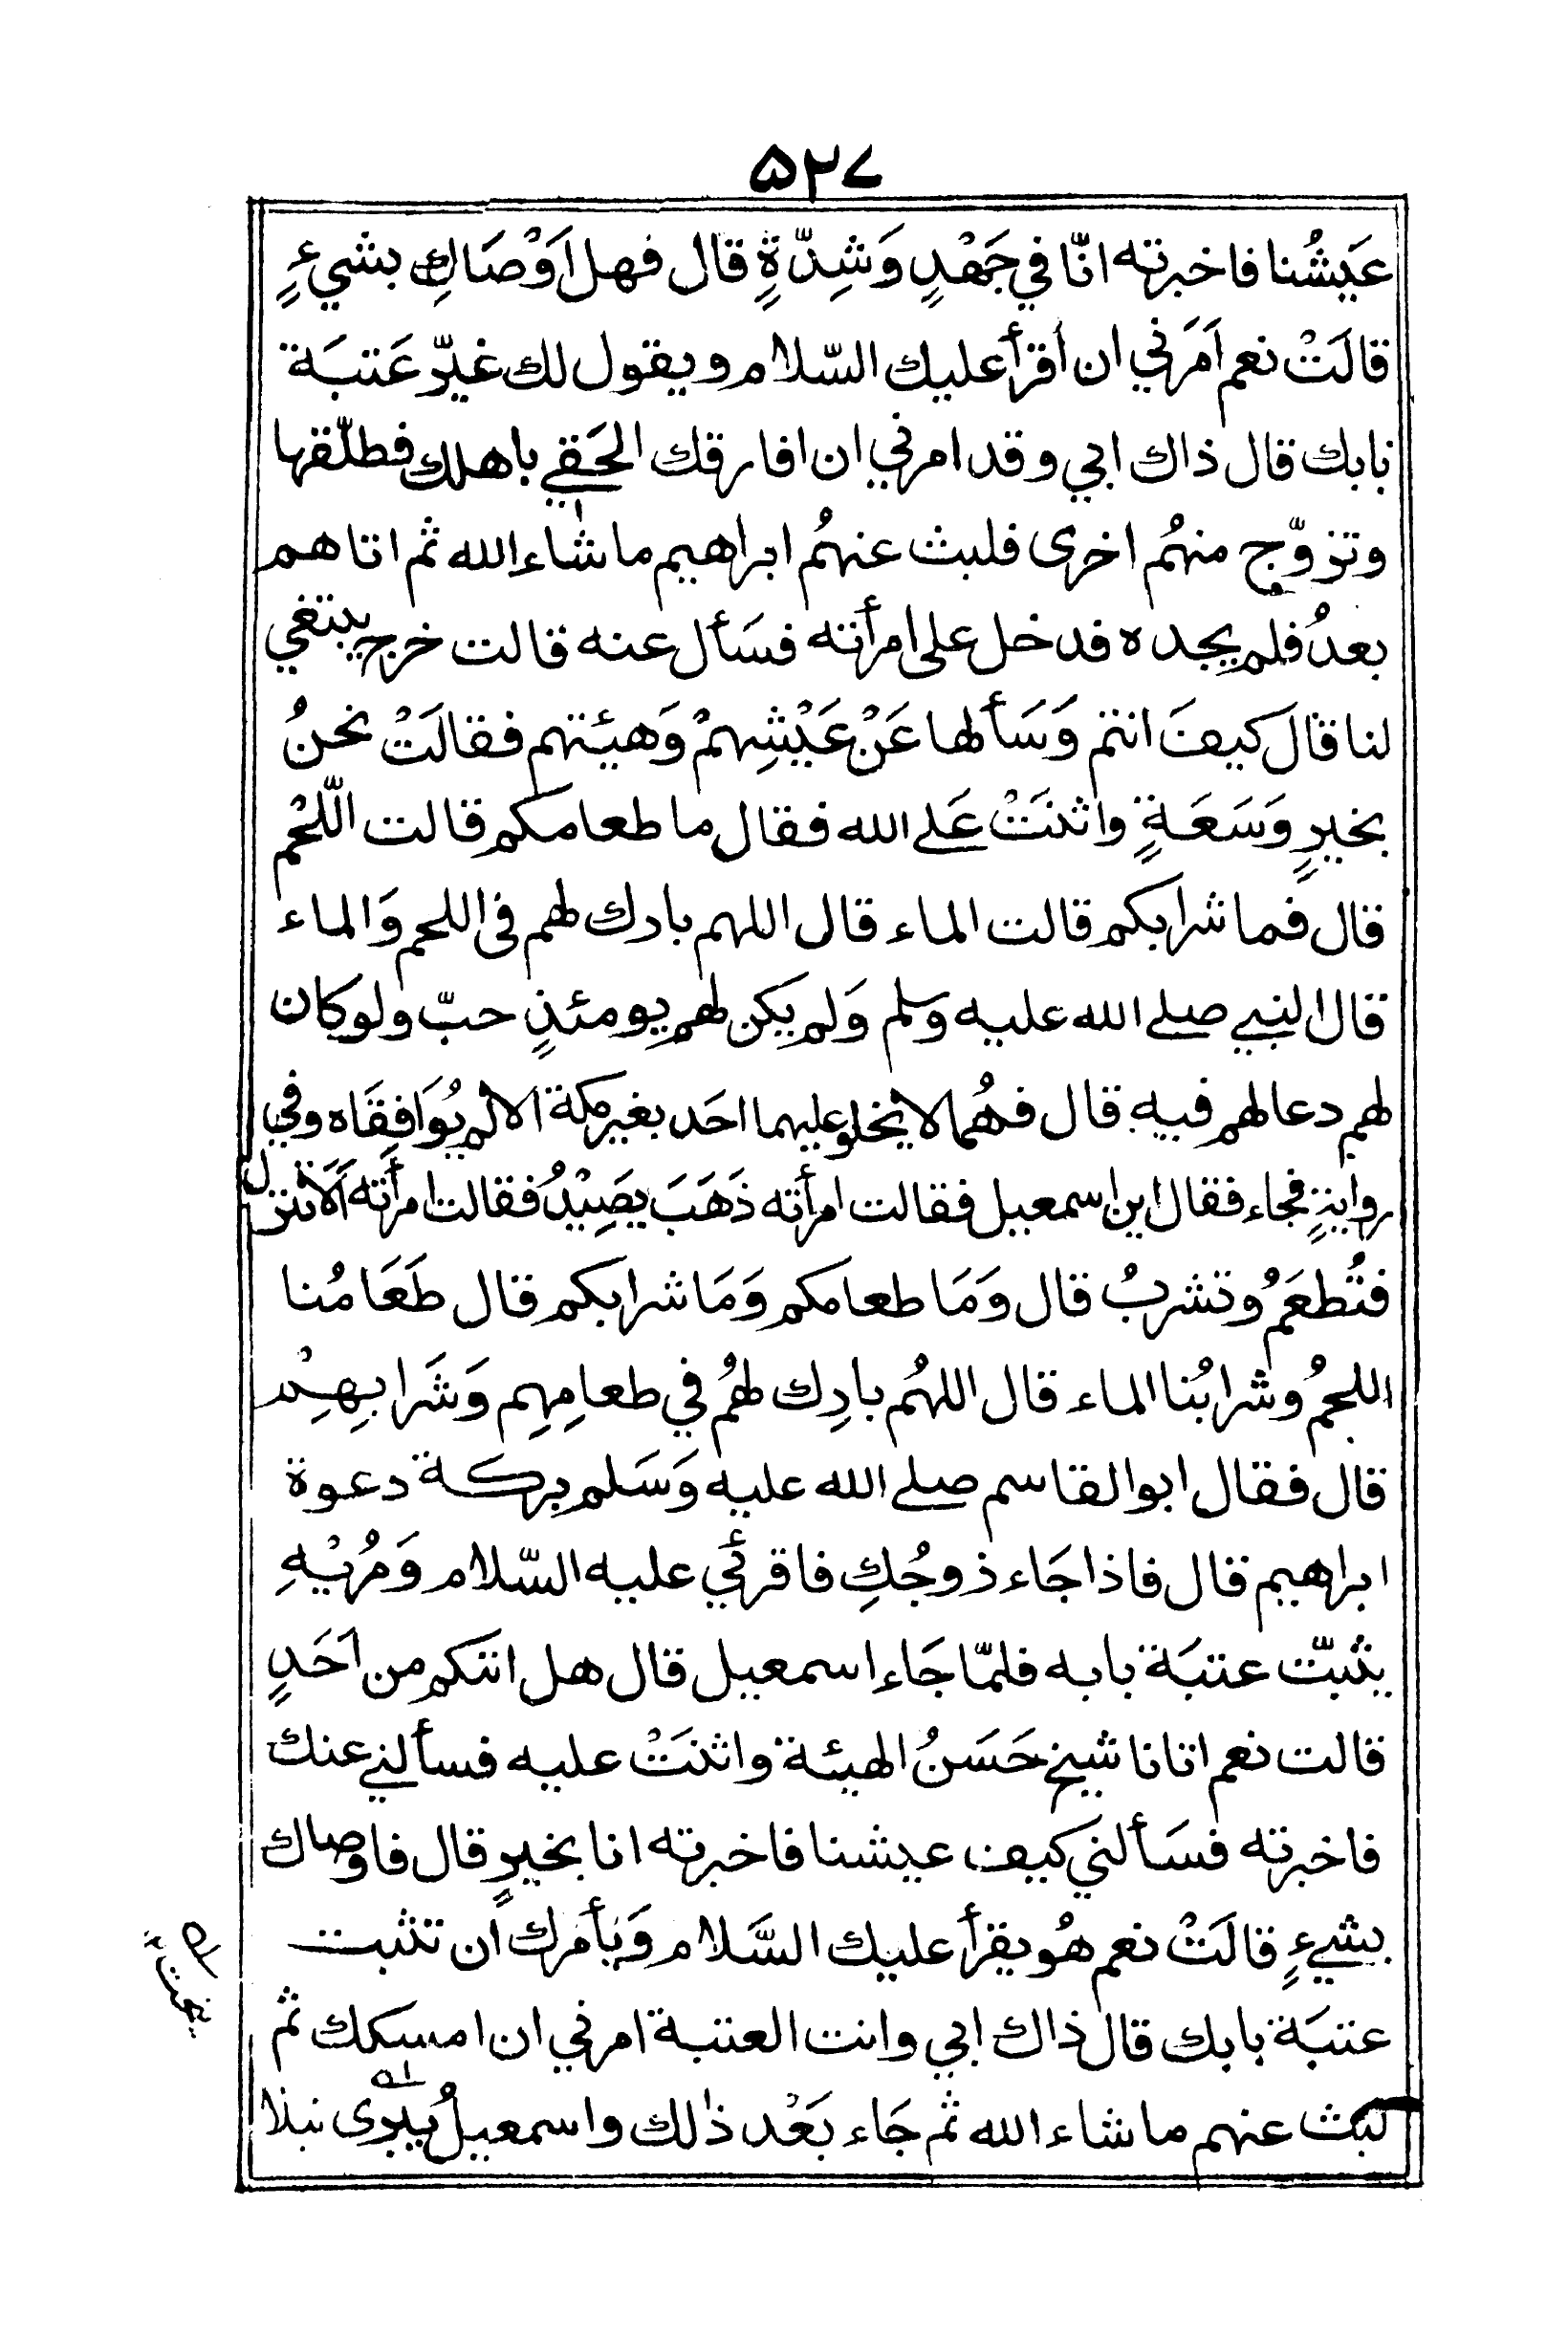 ۵۲۷
عَيشُنا فاخبرته انّا في جَهْدٍ وَشِدّةٍ قال فهل اَوْصَاكِ بشيءٍ
قالَتْ نعم اَمَرَني ان أقرأ عليك السّلام ويقول لك غيّر عَتبَة
بابك قال ذاك ابي وقد امرني ان افارقك الحَقي باهلك فطلّقها
وتزوّج منهُم اخرى فلبث عنهُم ابراهيم ما شاء الله ثم اتاهم
بعدُ فلم يجده فدخل على امرأته فسَأل عنه قالت خرج يبتغي
لنا قال كيفَ انتم وَسَألها عَنْ عَيْشِهمْ وَهيئتهم فقالَتْ نحنُ
بخيرٍ وَسَعَةٍ واثنَتْ عَلى الله فقال ما طعامكم قالت اللّحْم
قال فما شرابكم قالت الماء قال اللهم بارك لهم فى اللحم وَالماء
قال النبي صلى الله عليه وسلم وَلم يكن لهم يومئذٍ حبّ ولو كان
لهم دعا لهم فيه قال فهُما لا يخلو عليهما احَد بغير مكة الا لم يُوَافِقَاه وفي
روايةٍ فجاء فقال اين اسمعيل فقالت امرأته ذَهَبَ يصَيْدُ فقالت امرأته اَلَا تنزل
فتُطعَمُ وتشربُ قال وَمَا طعامكم وَمَا شرابكم قال طَعَامُنا
اللحمُ وشرابُنا الماء قال اللهُم بارِك لهُم في طعامِهِم وَشَرابِهِمْ
قال فقال ابوالقاسم صلى الله عليه وَسَلم بركة دعوة
ابراهيم قال فاذا جَاء زوجُكِ فاقرئي عليه السّلام وَمُريْهِ
يثبّت عتبَة بابه فلمّا جَاء اسمعيل قال هل اتٰكم من اَحَدٍ
قالت نعم اتانا شيخ حَسَنُ الهيئة واثنَتْ عليه فسألني عنك
فاخبرته فسَألني كيف عيشنا فاخبرته انا بخيرٍ قال فاوصاك
بشيءٍ قالَتْ نعم هُو يقرأ عليك السَّلام وَيأمرك ان تثبت
عتبَة بابك قال ذاك ابي وانت العتبة امرني ان امسكك ثم
لبث عنهم ما شاء الله ثم جَاء بَعْد ذٰلك واسمعيلُ يبرى نبلا